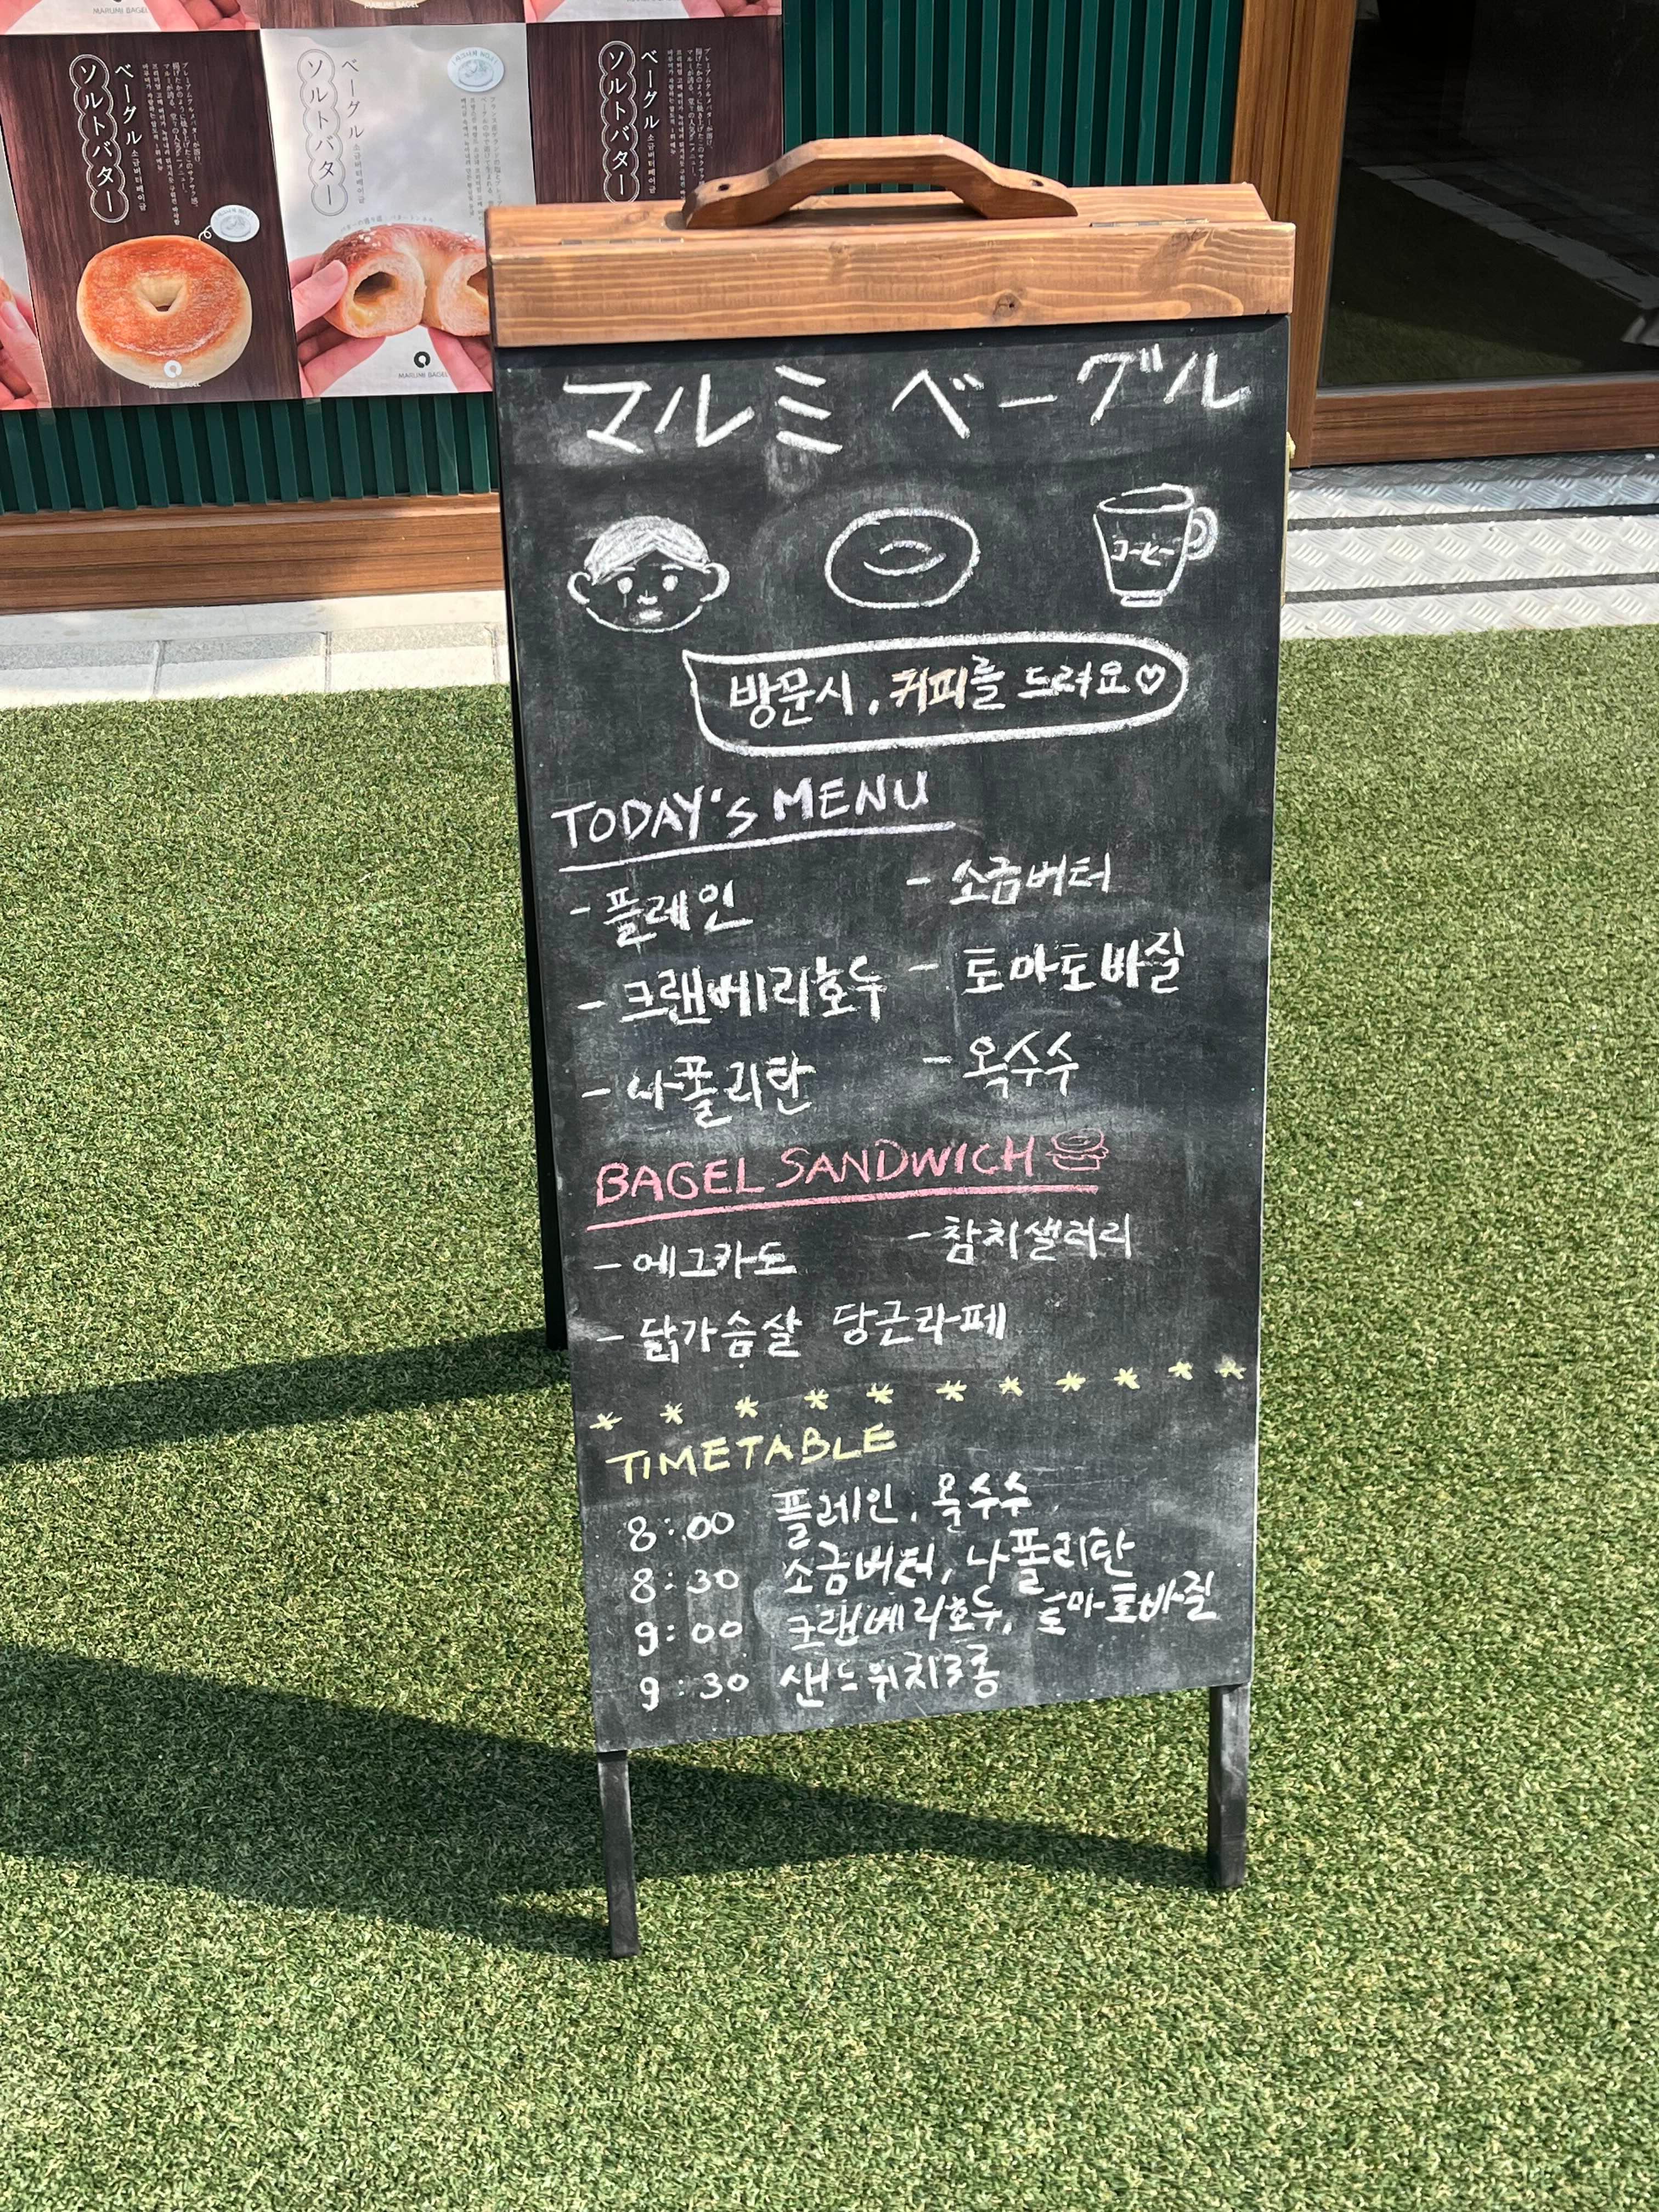 MARUMI BAGEL
MARUMI BAGEL
ベーグル 소금버터베이글
ソルトバター
MARUMI BAGEL
ベーグル 소금버터베이글
ソルトバター
MARUMI BAGEL
ベーグル 소금버터베이글
ソルトバター
マルミ ベーグル
コーヒー
방문시, 커피를 드려요♡
TODAY'S MENU
- 플레인 - 소금버터
- 크랜베리호두 - 토마토바질
- 나폴리탄 - 옥수수
BAGEL SANDWICH
- 에그카도 - 참치샐러리
- 닭가슴살 당근라페
* * * * * * * * * * *
TIMETABLE
8:00 플레인, 옥수수
8:30 소금버터, 나폴리탄
9:00 크랜베리호두, 토마토바질
9:30 샌드위치3종